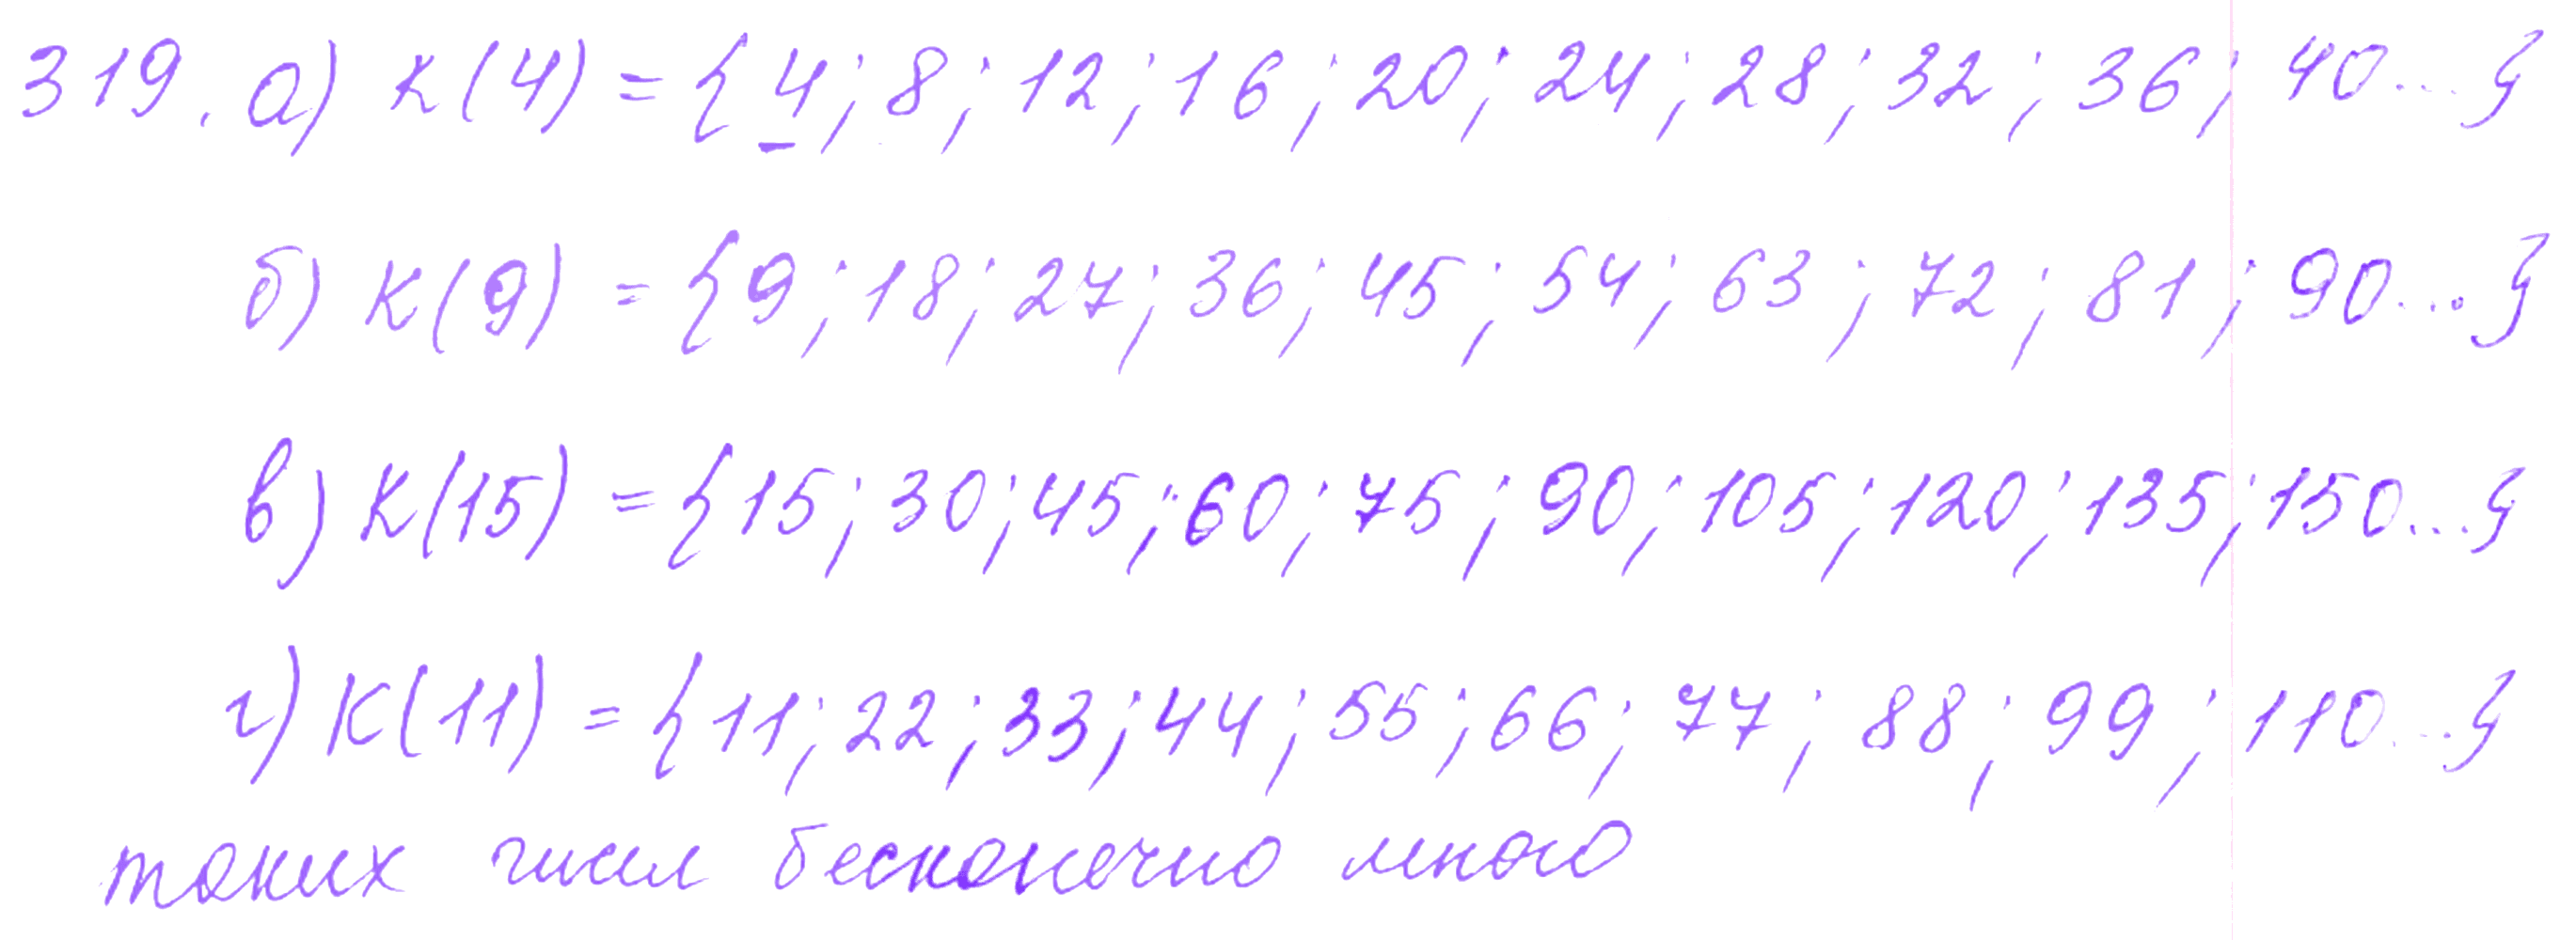 319. а) К(4) = {4; 8; 12; 16; 20; 24; 28; 32; 36; 40...}
б) К(9) = {9; 18; 27; 36; 45; 54; 63; 72; 81; 90...}
в) К(15) = {15; 30; 45; 60; 75; 90; 105; 120; 135; 150...}
г) К(11) = {11; 22; 33; 44; 55; 66; 77; 88; 99; 110...}
таких чисел бесконечно много